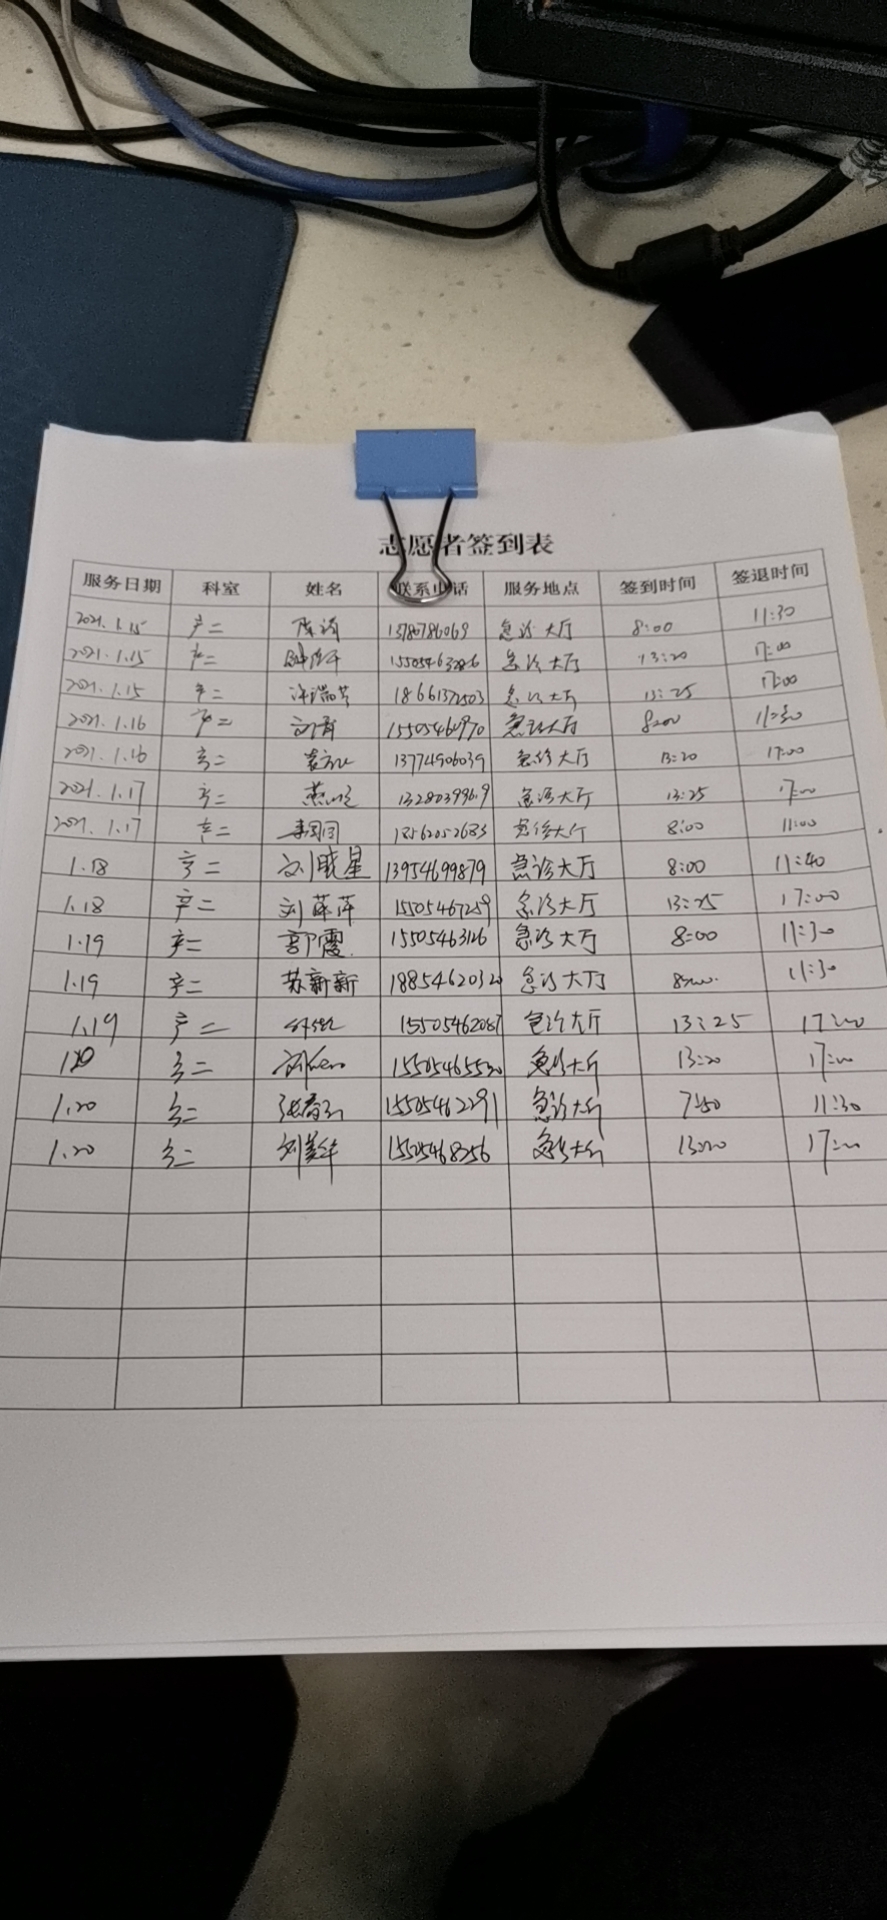 志愿者签到表
服务日期 科室 姓名 联系电话 服务地点 签到时间 签退时间
2021.1.15 产二 13780786069 急诊大厅 8:00 11:30
2021.1.15 产二 急诊大厅 13:20 17:00
2021.1.15 产二 许瑞芳 18661372503 急诊大厅 13:25 17:00
2021.1.16 产二 15505460970 急诊大厅 8:00 11:30
2021.1.16 产二 13774906039 急诊大厅 13:20 17:00
2021.1.17 产二 急诊大厅 13:25 17:00
2021.1.17 产二 急诊大厅 8:00 11:00
1.18 产二 刘晓星 13954699879 急诊大厅 8:00 11:40
1.18 产二 刘萍萍 15505467259 急诊大厅 13:25 17:00
1.19 产二 郭霞 15505463126 急诊大厅 8:00 11:30
1.19 产二 苏新新 18854620320 急诊大厅 8:00 11:30
1.19 产二 15505462087 急诊大厅 13:25 17:00
1.20 产二 15505465530 急诊大厅 13:20 17:00
1.20 产二 15505462291 急诊大厅 7:50 11:30
1.20 产二 15505468256 急诊大厅 13:20 17:00